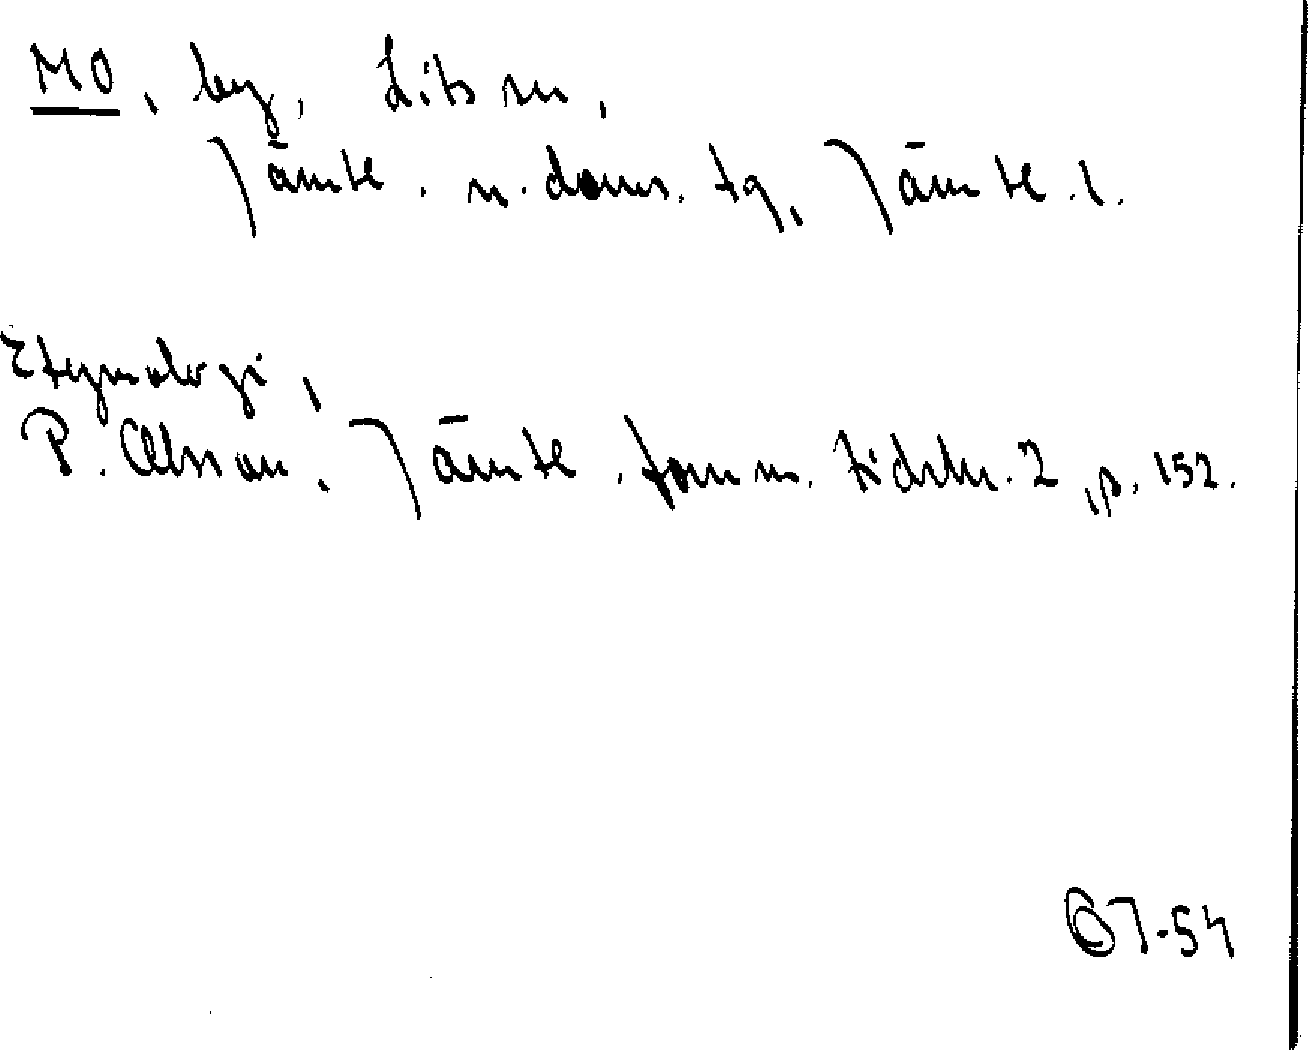 MO, by, Lits sn,
Jämtl. n. doms. tg, Jämtl. l.
Etymologi,
P. Olsson, Jämtl. forn m. tidskr. 2, p. 152.
OJ-54